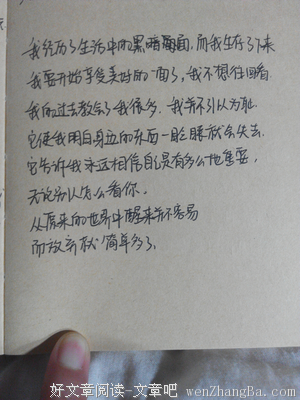 我经历了生活中的黑暗面,而我生存了下来
我要开始享受美好的一面了,我不想往回看
我的过去教会了我很多,我并不引以为耻
它使我明白身边的东西一眨眼就会失去
它告诉我永远相信自己是有多么地重要,
无论别人怎么看你.
从原来的世界中醒来并不容易
而放弃就简单多了。
好文章阅读-文章吧 wenZhangBa.com